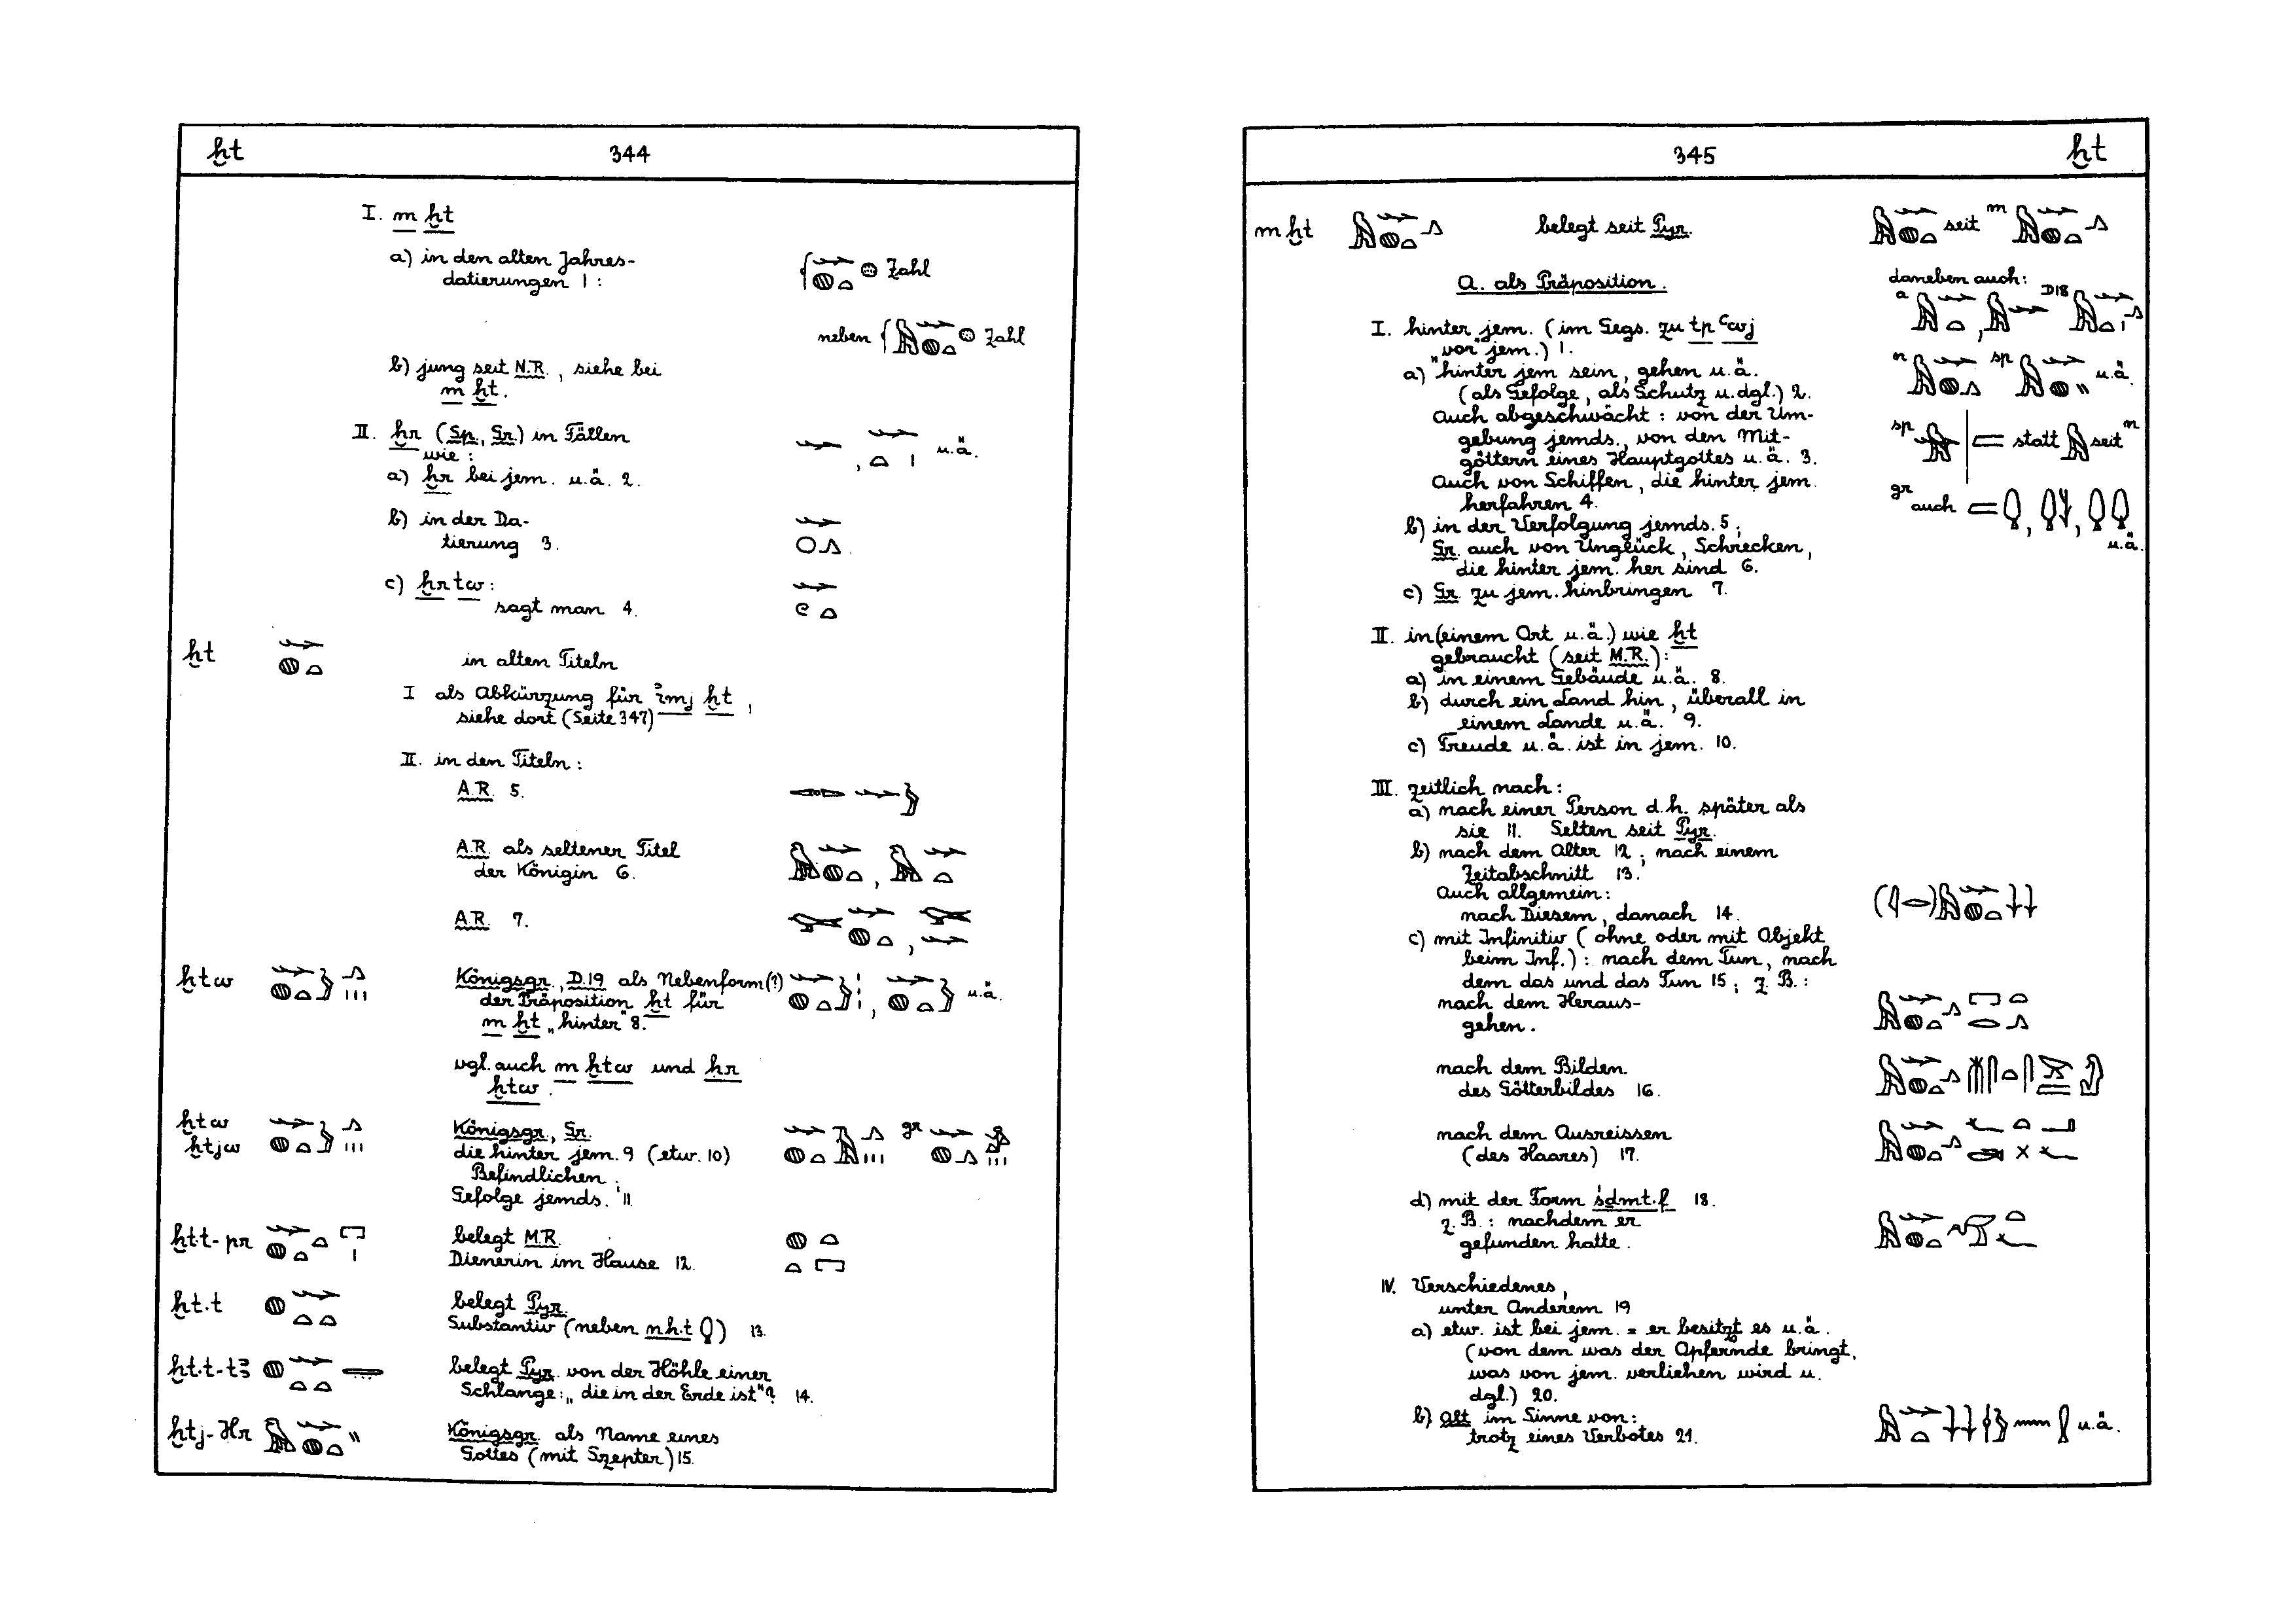 ẖt 344
I. m ẖt
a) in den alten Jahres-
datierungen 1 : Zahl
neben Zahl
b) jung seit N.R., siehe bei
m ẖt.
II. ẖr (Sp., Gr.) in Fällen
wie : , u.ä.
a) ẖr bei jem. u.ä. 2.
b) in der Da-
tierung 3.
c) ẖr tw :
sagt man 4.
ẖt in alten Titeln
I als Abkürzung für ỉmj ẖt,
siehe dort (Seite 347)
II. in den Titeln :
A.R. 5.
A.R. als seltener Titel
der Königin 6. ,
A.R. 7. ,
ẖtw Königsgr., D.19 als Nebenform(?)
der Präposition ẖt für , u.ä.
m ẖt „hinter" 8.
vgl. auch m ẖtw und ẖr
ẖtw.
ẖtw Königsgr., Gr. gr
ẖtjw die hinter jem. 9 (etw. 10)
Befindlichen ;
Gefolge jemds. 11.
ẖt.t-pr belegt M.R.
Dienerin im Hause 12.
ẖt.t belegt Pyr.
Substantiv (neben nh.t ) 13.
ẖt.t-tꜣ belegt Pyr. von der Höhle einer
Schlange: „die in der Erde ist"? 14.
ẖtj-Hr Königsgr. als Name eines
Gottes (mit Szepter) 15.
345 ẖt
m ẖt belegt seit Pyr. seit m
A. als Präposition. daneben auch:
a , D18
I. hinter jem. (im Gegs. zu tp ꜥwj
„vor" jem.) 1.
a) hinter jem sein, gehen u.ä. n sp u.ä.
(als Gefolge, als Schutz u.dgl.) 2.
Auch abgeschwächt : von der Um-
gebung jemds., von den Mit- sp statt seit n
göttern eines Hauptgottes u.ä. 3.
Auch von Schiffen, die hinter jem.
herfahren 4. gr auch , ,
b) in der Verfolgung jemds. 5 ;
Gr. auch von Unglück, Schrecken, u.ä.
die hinter jem. her sind 6.
c) Gr. zu jem. hinbringen 7.
II. in (einem Ort u.ä.) wie ẖt
gebraucht (seit M.R.) :
a) in einem Gebäude u.ä. 8.
b) durch ein Land hin, überall in
einem Lande u.ä. 9.
c) Freude u.ä. ist in jem. 10.
III. zeitlich nach :
a) nach einer Person d.h. später als
sie 11. Selten seit Pyr.
b) nach dem Alter 12 ; nach einem
Zeitabschnitt 13.
Auch allgemein :
nach Diesem, danach 14.
c) mit Infinitiv (ohne oder mit Objekt
beim Inf.) : nach dem Tun, nach
dem das und das Tun 15 ; z. B. :
nach dem Heraus-
gehen.
nach dem Bilden
des Götterbildes 16.
nach dem Ausreissen
(des Haares) 17.
d) mit der Form śdmt.f 18.
z. B. : nachdem er
gefunden hatte.
IV. Verschiedenes,
unter Anderem 19
a) etw. ist bei jem. = er besitzt es u.ä.
(von dem was der Opfernde bringt,
was von jem. verliehen wird u.
dgl.) 20.
b) alt im Sinne von :
trotz eines Verbotes 21. u.ä.